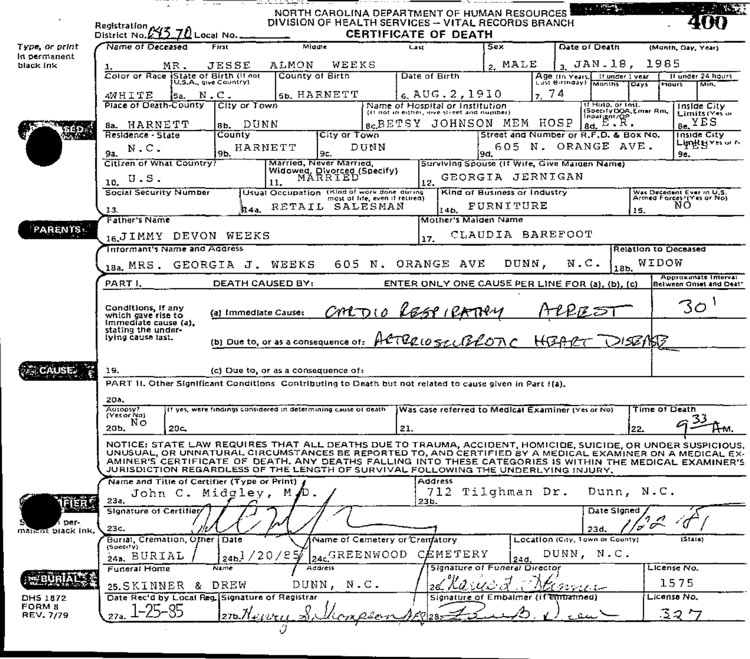 NORTH CAROLINA DEPARTMENT OF HUMAN RESOURCES
DIVISION OF HEALTH SERVICES – VITAL RECORDS BRANCH
CERTIFICATE OF DEATH
400
Registration District No. 043 70 Local No.
Type, or print in permanent black ink
Name of Deceased First Middle Last Sex Date of Death (Month, Day, Year)
1. MR. JESSE ALMON WEEKS 2. MALE 3. JAN.18, 1985
Color or Race State of Birth (If not U.S.A., give Country) County of Birth Date of Birth Age (In Years, Last Birthday) If under 1 year Months Days If under 24 hours Hours Min.
4. WHITE 5a. N.C. 5b. HARNETT 6. AUG.2,1910 7. 74
Place of Death-County City or Town Name of Hospital or Institution (If not in either, give street and number) If Hosp. or Inst. (Specify DOA, Emer Rm, Inpatient/OP) Inside City Limits (Yes or
8a. HARNETT 8b. DUNN 8c. BETSY JOHNSON MEM HOSP 8d. E.R. 8e. YES
Residence - State County City or Town Street and Number or R.F.D. & Box No. Inside City Limits (Yes or
9a. N.C. 9b. HARNETT 9c. DUNN 9d. 605 N. ORANGE AVE. 9e. YES
Citizen of What Country? Married, Never Married, Widowed, Divorced (Specify) Surviving Spouse (If Wife, Give Maiden Name)
10. U.S. 11. MARRIED 12. GEORGIA JERNIGAN
Social Security Number Usual Occupation (Kind of work done during most of life, even if retired) Kind of Business or Industry Was Decedent Ever in U.S. Armed Forces? (Yes or No)
13. 14a. RETAIL SALESMAN 14b. FURNITURE 15. NO
PARENTS
Father's Name Mother's Maiden Name
16. JIMMY DEVON WEEKS 17. CLAUDIA BAREFOOT
Informant's Name and Address Relation to Deceased
18a. MRS. GEORGIA J. WEEKS 605 N. ORANGE AVE DUNN, N.C. 18b. WIDOW
PART I. DEATH CAUSED BY: ENTER ONLY ONE CAUSE PER LINE FOR (a), (b), (c) Approximate Interval Between Onset and Death
Conditions, if any which gave rise to immediate cause (a), stating the underlying cause last.
(a) Immediate Cause: CARDIO RESPIRATORY ARREST 30'
(b) Due to, or as a consequence of: ARTERIOSCLEROTIC HEART DISEASE
CAUSE
19. (c) Due to, or as a consequence of:
PART II. Other Significant Conditions Contributing to Death but not related to cause given in Part I(a).
20a.
Autopsy? (Yes or No) If yes, were findings considered in determining cause of death Was case referred to Medical Examiner (Yes or No) Time of Death
20b. NO 20c. 21. 22. 9 33 A M.
NOTICE: STATE LAW REQUIRES THAT ALL DEATHS DUE TO TRAUMA, ACCIDENT, HOMICIDE, SUICIDE, OR UNDER SUSPICIOUS,
UNUSUAL, OR UNNATURAL CIRCUMSTANCES BE REPORTED TO, AND CERTIFIED BY A MEDICAL EXAMINER ON A MEDICAL EX-
AMINER'S CERTIFICATE OF DEATH. ANY DEATHS FALLING INTO THESE CATEGORIES IS WITHIN THE MEDICAL EXAMINER'S
JURISDICTION REGARDLESS OF THE LENGTH OF SURVIVAL FOLLOWING THE UNDERLYING INJURY.
Name and Title of Certifier (Type or Print) Address
23a. John C. Midgley, M.D. 23b. 712 Tilghman Dr. Dunn, N.C.
Signature of Certifier Date Signed
23c. 23d.
Burial, Cremation, Other (Specify) Date Name of Cemetery or Crematory Location (City, Town or County) (State)
24a. BURIAL 24b. 1/20/85 24c. GREENWOOD CEMETERY 24d. DUNN, N.C.
BURIAL
Funeral Home Name Address Signature of Funeral Director License No.
25. SKINNER & DREW DUNN, N.C. 26. 1575
DHS 1872
FORM 8
REV. 7/79
Date Rec'd by Local Reg. Signature of Registrar Signature of Embalmer (If Embalmed) License No.
27a. 1-25-85 27b. Henry S. Thompson 28. 327